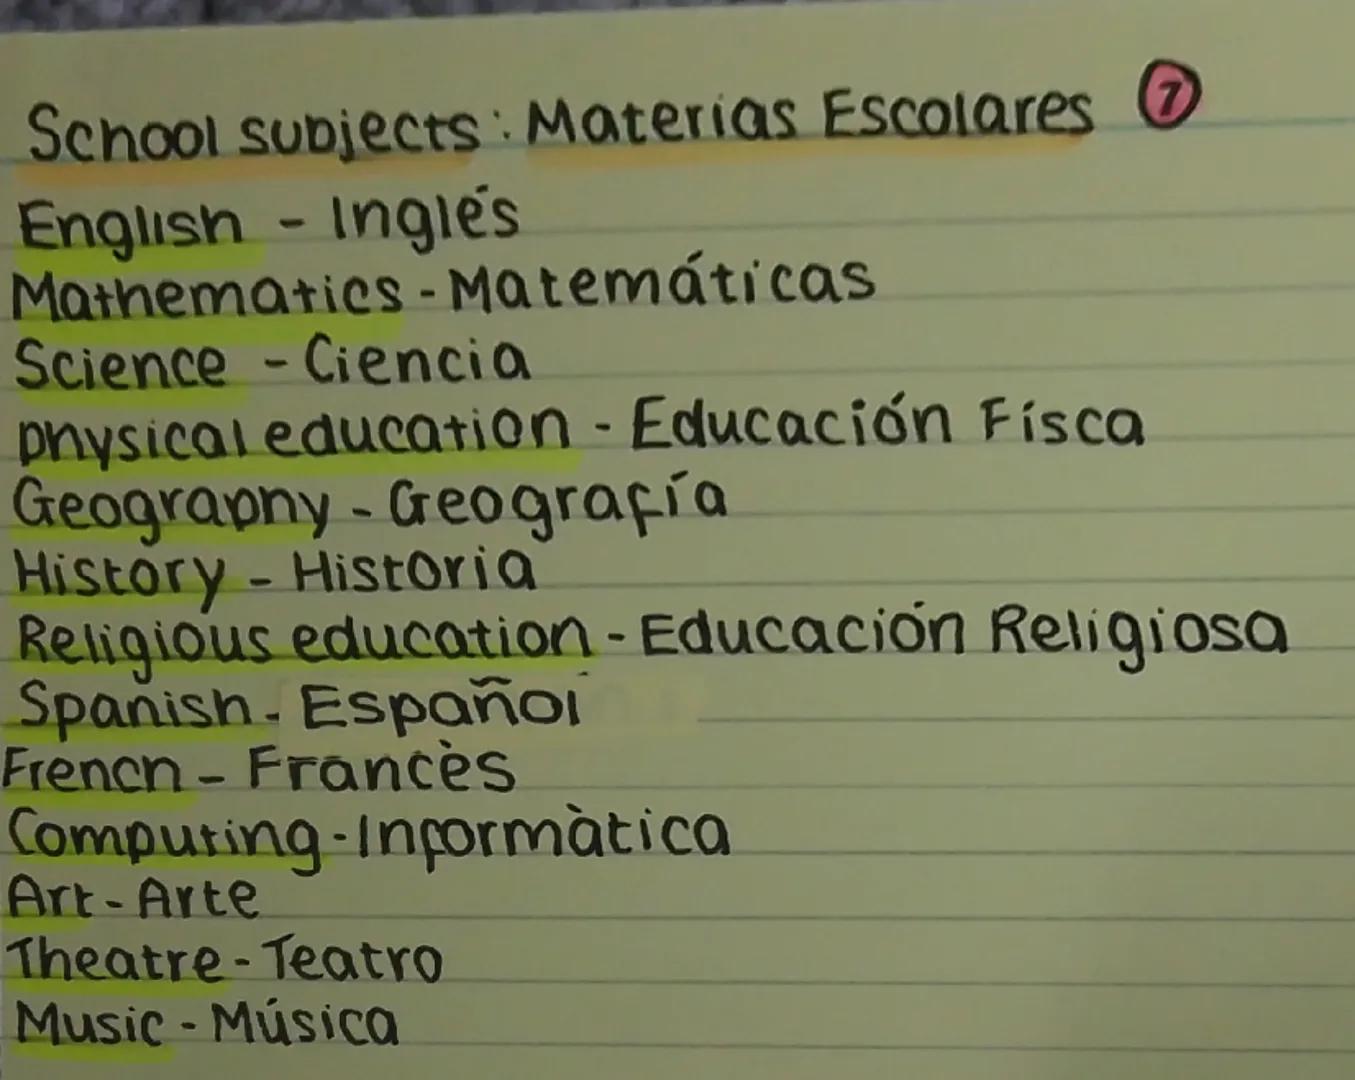 School subjects: Materias Escolares 7
English - Inglés
Mathematics - Matemáticas
Science - Ciencia
physical education - Educación Físca
Geography - Geografía
History - Historia
Religious education - Educación Religiosa
Spanish - Español
French - Francès
Computing - Informàtica
Art - Arte
Theatre - Teatro
Music - Música